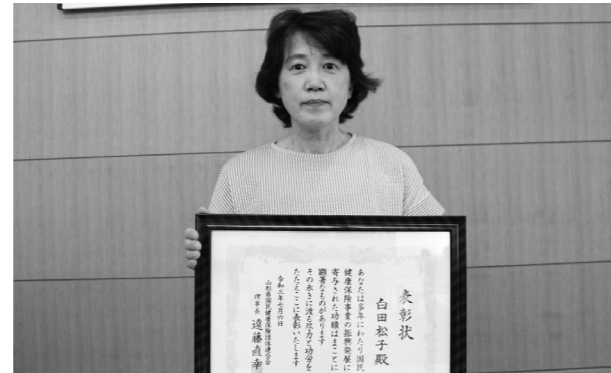 表彰状
白田松子殿
あなたは多年にわたり国民
健康保険事業の振興発展に
寄与された功績はまことに
顕著なものがあります
その永きに渡る尽力と功労を
たたえここに表彰いたします
令和三年七月六日
山形県国民健康保険団体連合会
理事長 遠藤直幸